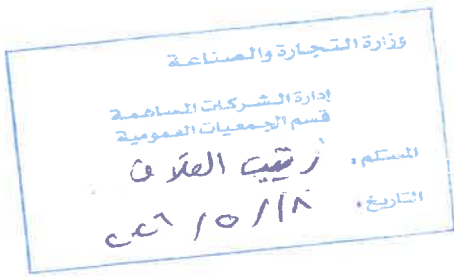 وزارة التجارة والصناعة
إدارة الشركات المساهمة
قسم الجمعيات العمومية
المستلم: زينب العلاق
التاريخ: ٢٠٢٦/٥/١٨